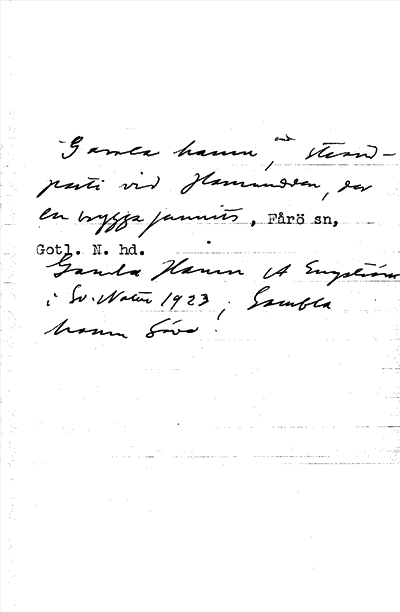 "Gamla hamn", strand-
parti vid Hamnudden, där
en brygga funnits, Fårö sn,
Gotl. N. hd.
Gamla Hamn A Engström
i Sv. Natur 1923; Gambla
hamn Säve.